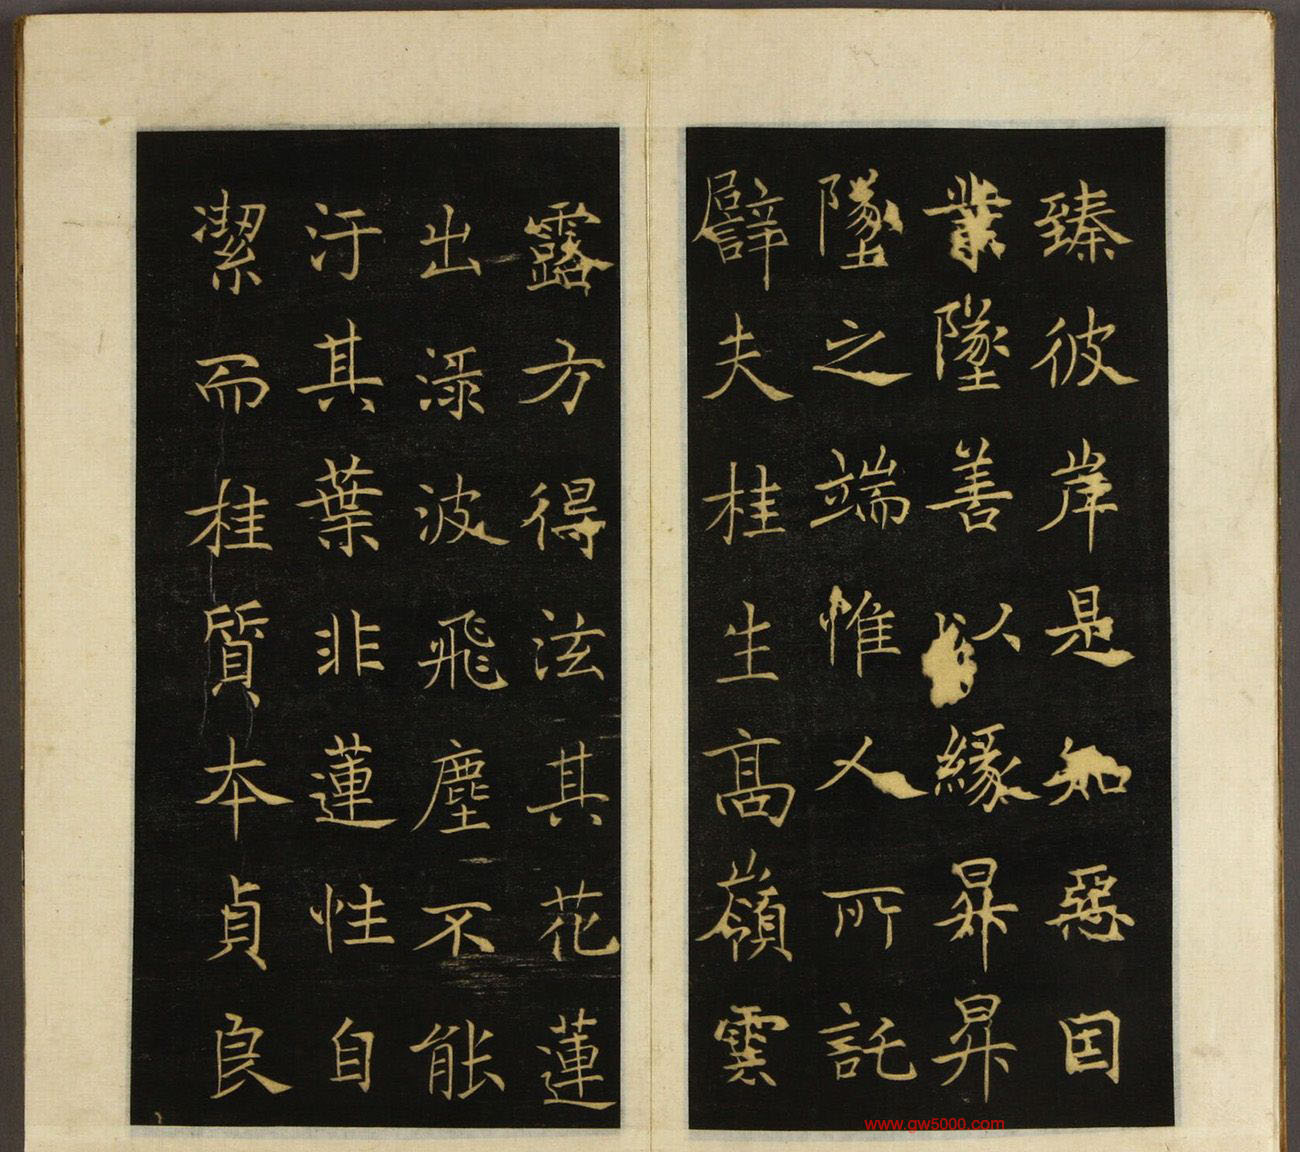 臻彼岸是知惡因
業墜善以緣昇昇
墜之端惟人所託
譬夫桂生高嶺雲
露方得泫其花蓮
出淥波飛塵不能
汙其葉非蓮性自
潔而桂質本貞良
www.gw5000.com